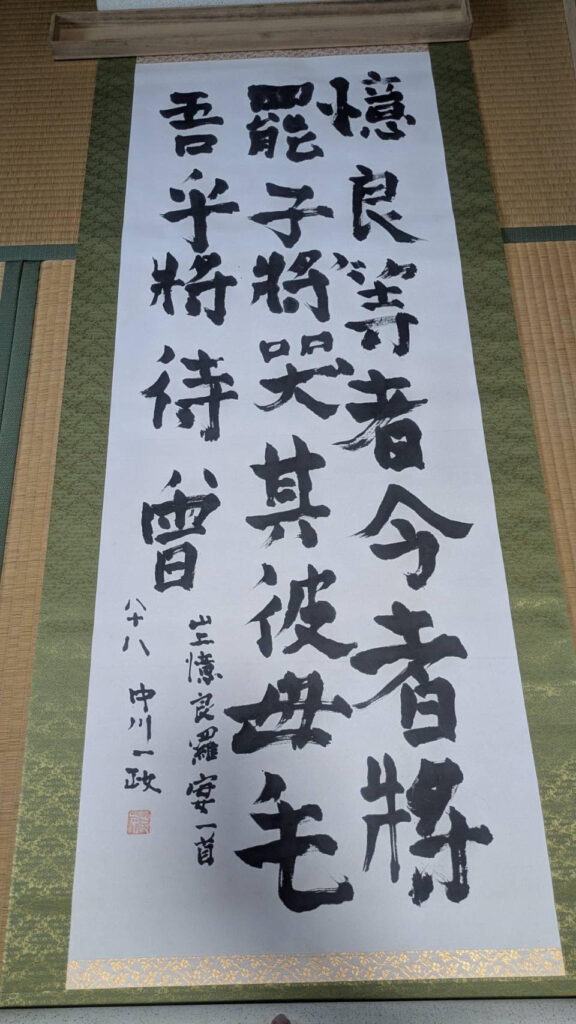 憶良等者今者將
罷子將哭其彼母毛
吾乎將待曽
山上憶良羅宴一首
八十八 中川一政